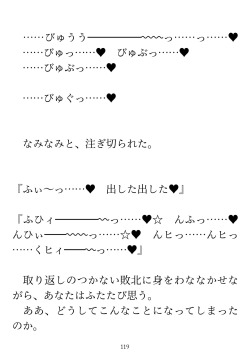 ……びゅうう━━━━━〜〜〜っ……っ……♥
……びゅっ……♥　びゅぶっ……♥
……びゅぶっ……♥
……びゅぐっ……♥
なみなみと、注ぎ切られた。
『ふぃ〜っ……♥　出した出した♥』
『ふひィ━━━━〜っ……♥☆　んふっ……♥
んひぃ━━〜〜〜っ……☆♥　んヒっ……んヒっ
……くヒィ━━〜っ……♥』
取り返しのつかない敗北に身をわななかせな
がら、あなたはふたたび思う。
ああ、どうしてこんなことになってしまった
のか。
119